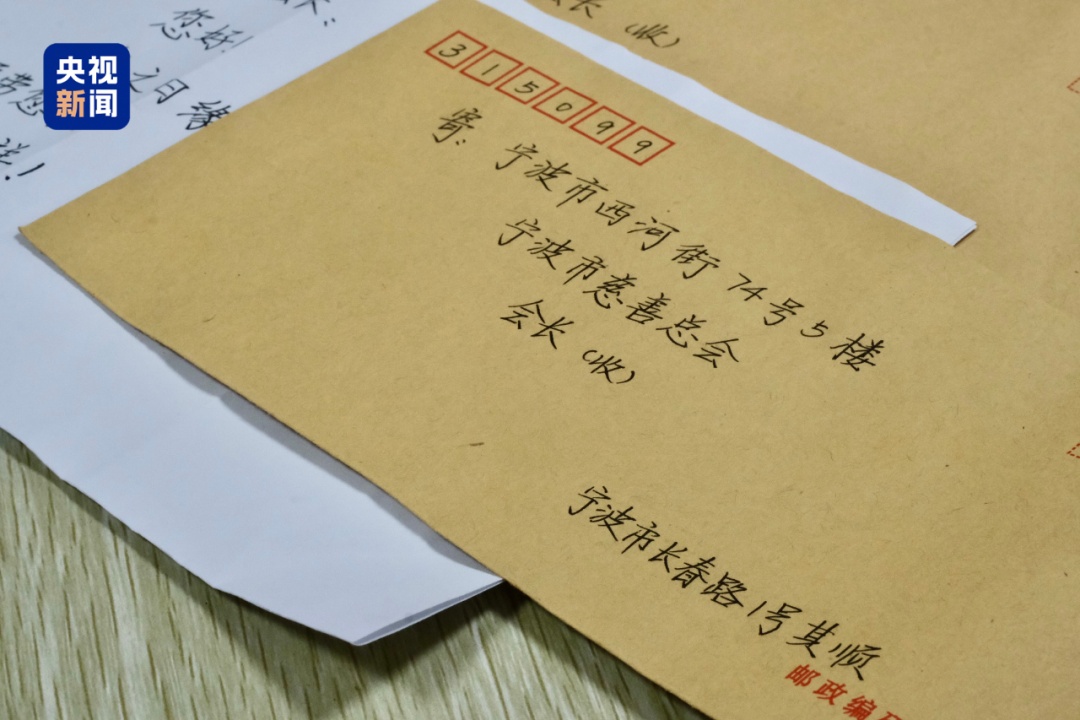 央视
新闻
您好!
之日 缘
会长 (收)
315099
寄:
宁波市西河街74号5楼
宁波市慈善总会
会长 (收)
宁波市长春路1号其顺
邮政编